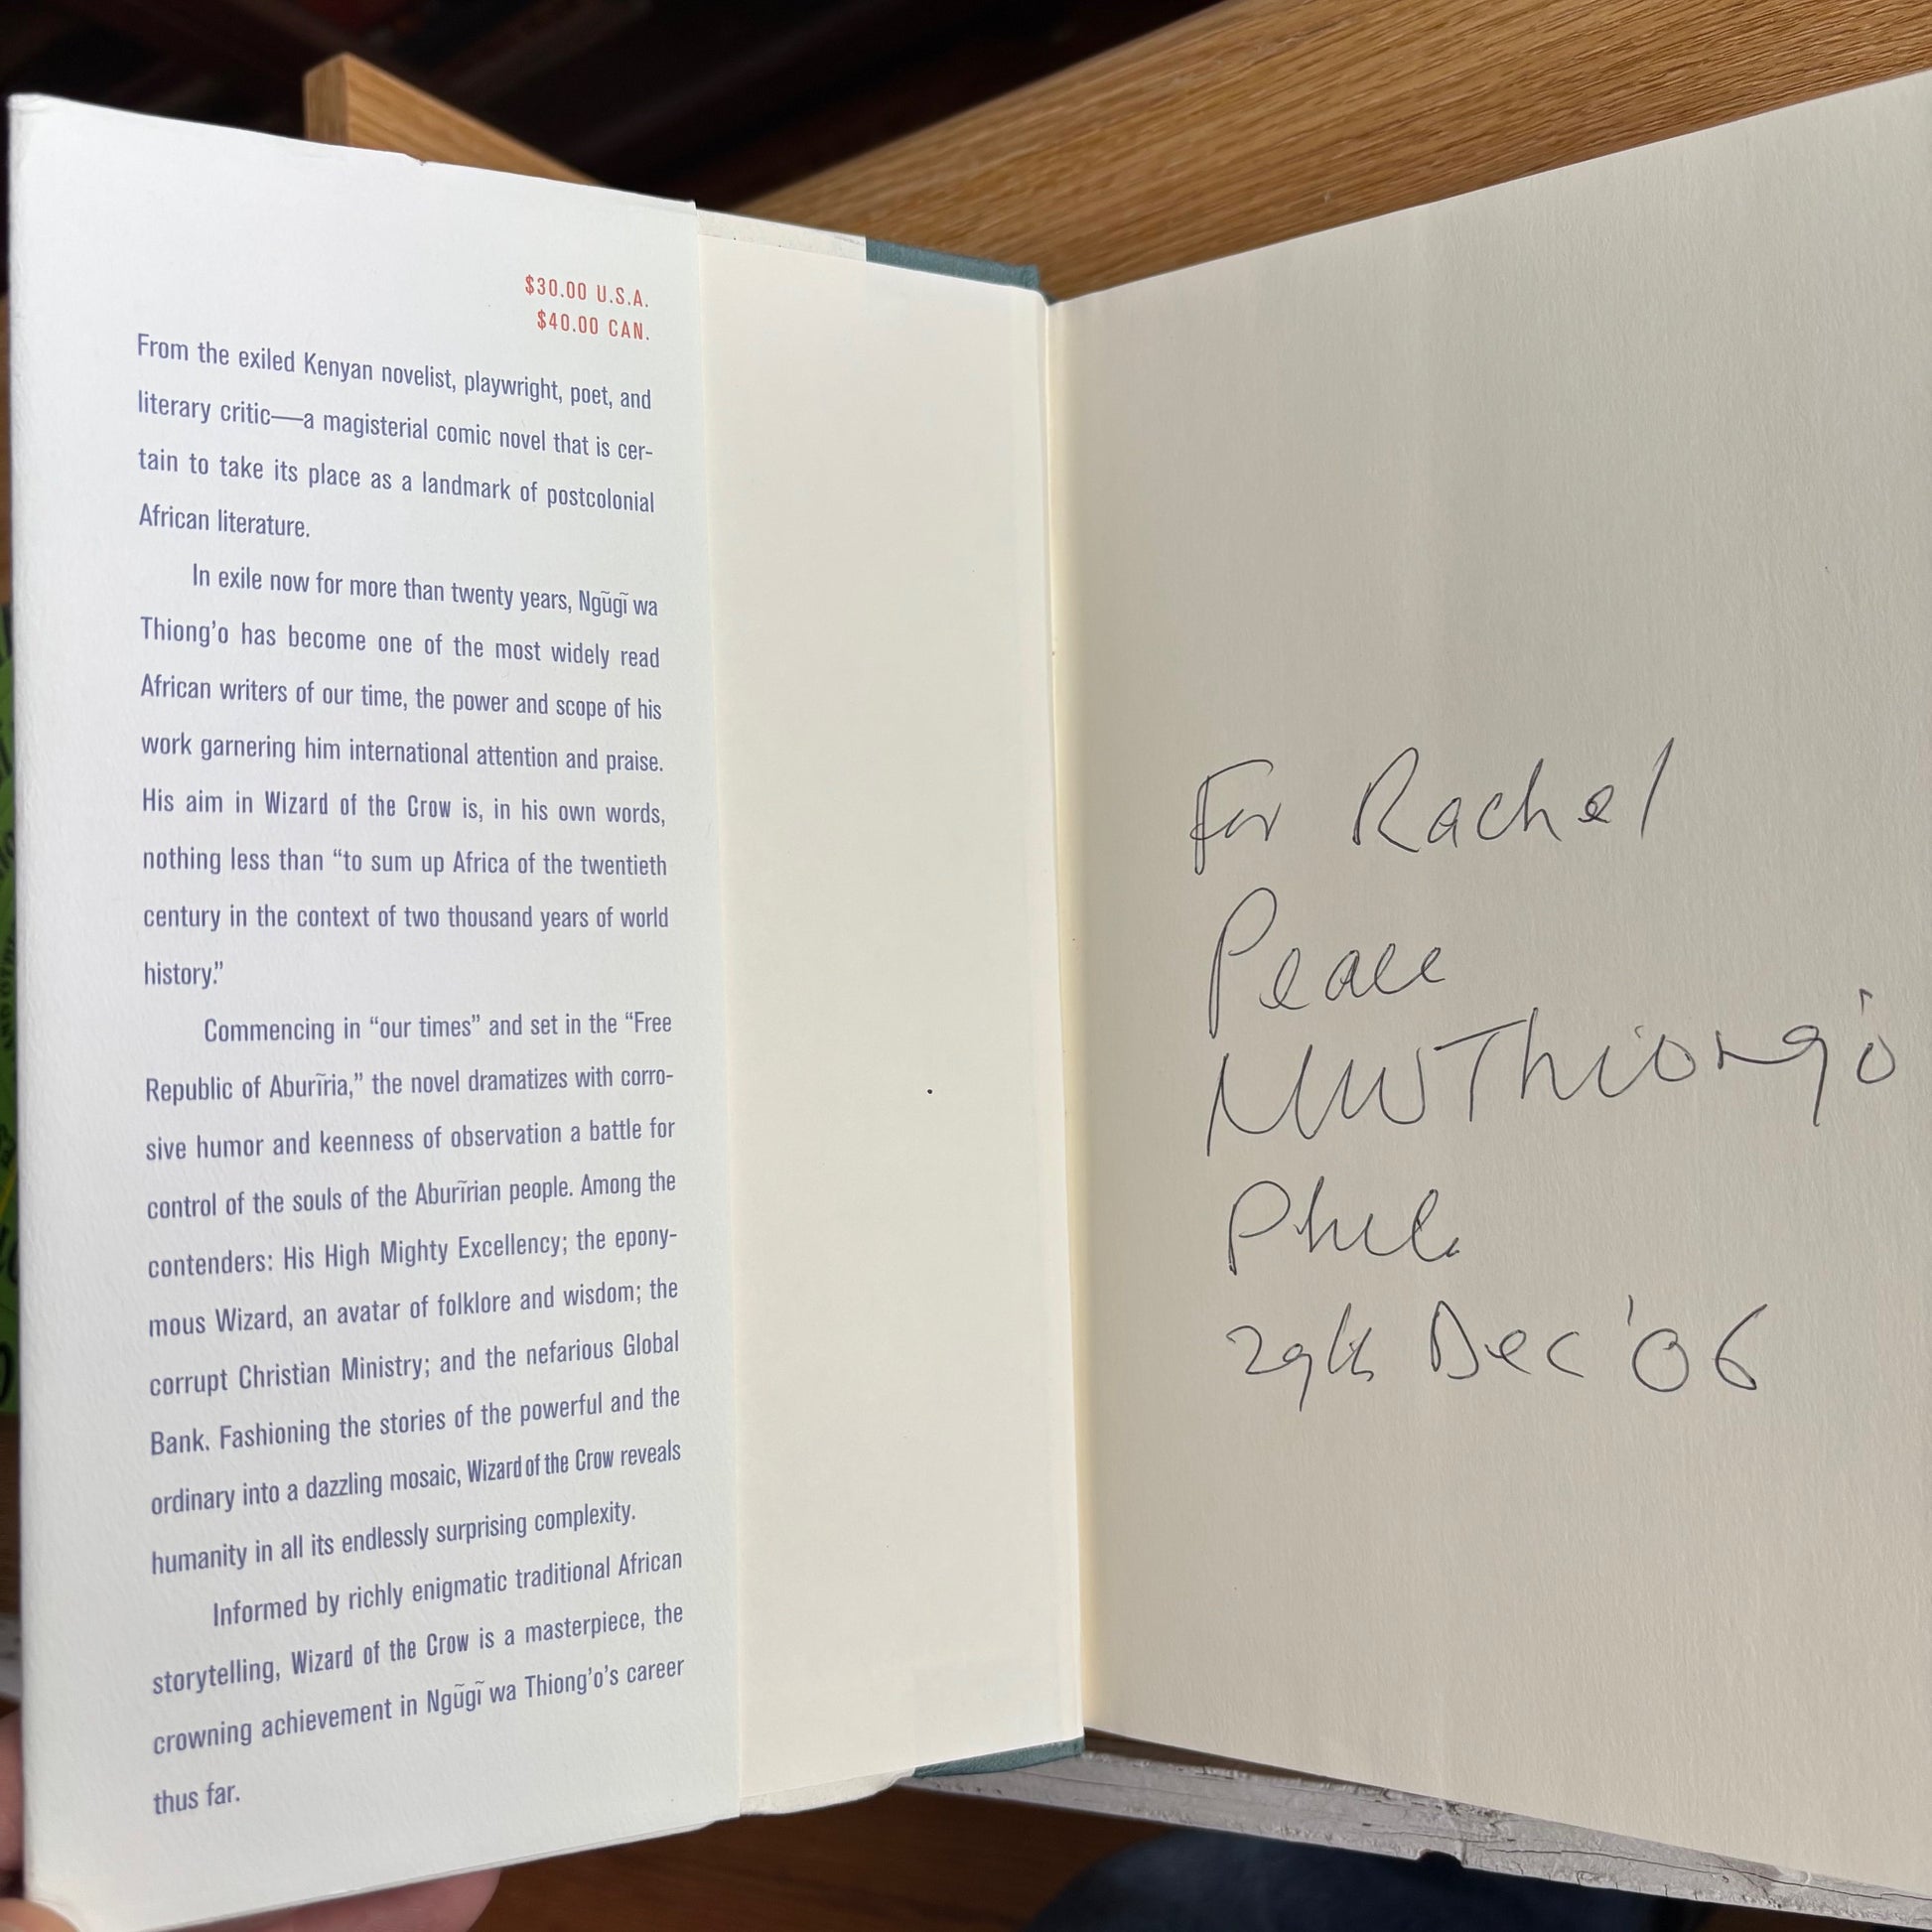 $30.00 U.S.A.
$40.00 CAN.
From the exiled Kenyan novelist, playwright, poet, and
literary critic—a magisterial comic novel that is cer-
tain to take its place as a landmark of postcolonial
African literature.
In exile now for more than twenty years, Ngũgĩ wa
Thiong’o has become one of the most widely read
African writers of our time, the power and scope of his
work garnering him international attention and praise.
His aim in Wizard of the Crow is, in his own words,
nothing less than “to sum up Africa of the twentieth
century in the context of two thousand years of world
history.”
Commencing in “our times” and set in the “Free
Republic of Aburĩria,” the novel dramatizes with corro-
sive humor and keenness of observation a battle for
control of the souls of the Aburĩrian people. Among the
contenders: His High Mighty Excellency; the epony-
mous Wizard, an avatar of folklore and wisdom; the
corrupt Christian Ministry; and the nefarious Global
Bank. Fashioning the stories of the powerful and the
ordinary into a dazzling mosaic, Wizard of the Crow reveals
humanity in all its endlessly surprising complexity.
Informed by richly enigmatic traditional African
storytelling, Wizard of the Crow is a masterpiece, the
crowning achievement in Ngũgĩ wa Thiong’o’s career
thus far.
For Rachel
Peace
NWThiong'o
Phil.
29th Dec '06